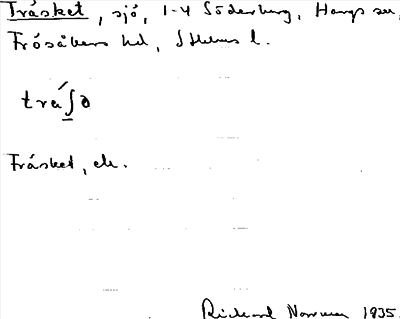 Träsket, sjö, 1-4 Söderby, Hargs sn,
Frösåkers hd, Sthlms l.
träʃə
Träsket, ek.
Rickard Norrman 1935.